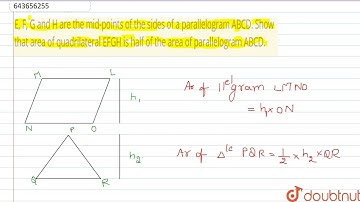 643656255
E, F, G and H are the mid-points of the sides of a parallelogram ABCD. Show
that area of quadrilateral EFGH is half of the area of parallelogram ABCD.
M L
h₁
N O
Ar of ||gram LMNO
= h₁×ON
P
h₂
Q R
Ar of Δle PQR = 1/2 × h₂ × QR
doubtnut